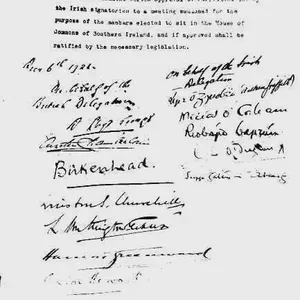 the Irish signatories to a meeting summoned for the
purpose of the members elected to sit in the House of
Commons of Southern Ireland, and if approved shall be
ratified by the necessary legislation.
Decr 6th 1921.
On behalf of the
British Delegation
On behalf of the Irish
Delegation
D Lloyd George
Austen Chamberlain
Birkenhead.
Winston S. Churchill
L Worthington-Evans
Hamar Greenwood
Gordon Hewart
Art Ó Gríobhtha (Arthur Griffith)
Mícheál Ó Coileáin
Riobárd Bartún